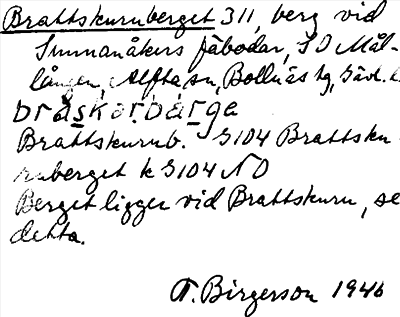 Brattskuruberget 311, berg vid
Sunnanåkers fäbodar, SO Mål-
lången, Alfta sn, Bollnäs tg, Gävl. l.
Brattskurub. G104 Brattsku-
ruberget k G104 NO
Berget ligger vid Brattskuru, se
detta.
T. Birgerson 1946